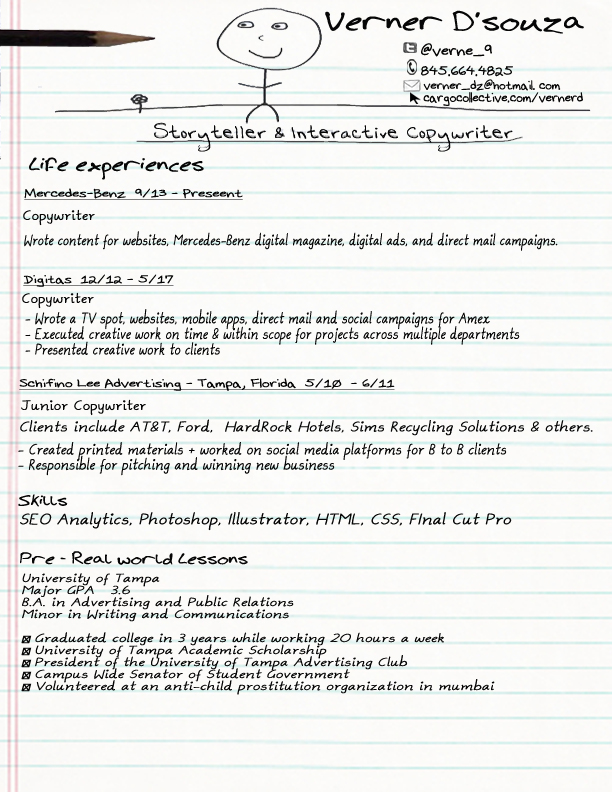 Verner D'souza
@verne_9
845.664.4825
verner_dz@hotmail.com
cargocollective.com/vernerd
Storyteller & Interactive Copywriter
Life experiences
Mercedes-Benz 9/13 - Preseent
Copywriter
Wrote content for websites, Mercedes-Benz digital magazine, digital ads, and direct mail campaigns.
Digitas 12/12 - 5/17
Copywriter
- Wrote a TV spot, websites, mobile apps, direct mail and social campaigns for Amex
- Executed creative work on time & within scope for projects across multiple departments
- Presented creative work to clients
Schifino Lee Advertising - Tampa, Florida 5/10 - 6/11
Junior Copywriter
Clients include AT&T, Ford, HardRock Hotels, Sims Recycling Solutions & others.
- Created printed materials + worked on social media platforms for B to B clients
- Responsible for pitching and winning new business
Skills
SEO Analytics, Photoshop, Illustrator, HTML, CSS, FInal Cut Pro
Pre - Real world Lessons
University of Tampa
Major GPA 3.6
B.A. in Advertising and Public Relations
Minor in Writing and Communications
Graduated college in 3 years while working 20 hours a week
University of Tampa Academic Scholarship
President of the University of Tampa Advertising Club
Campus Wide Senator of Student Government
Volunteered at an anti-child prostitution organization in mumbai